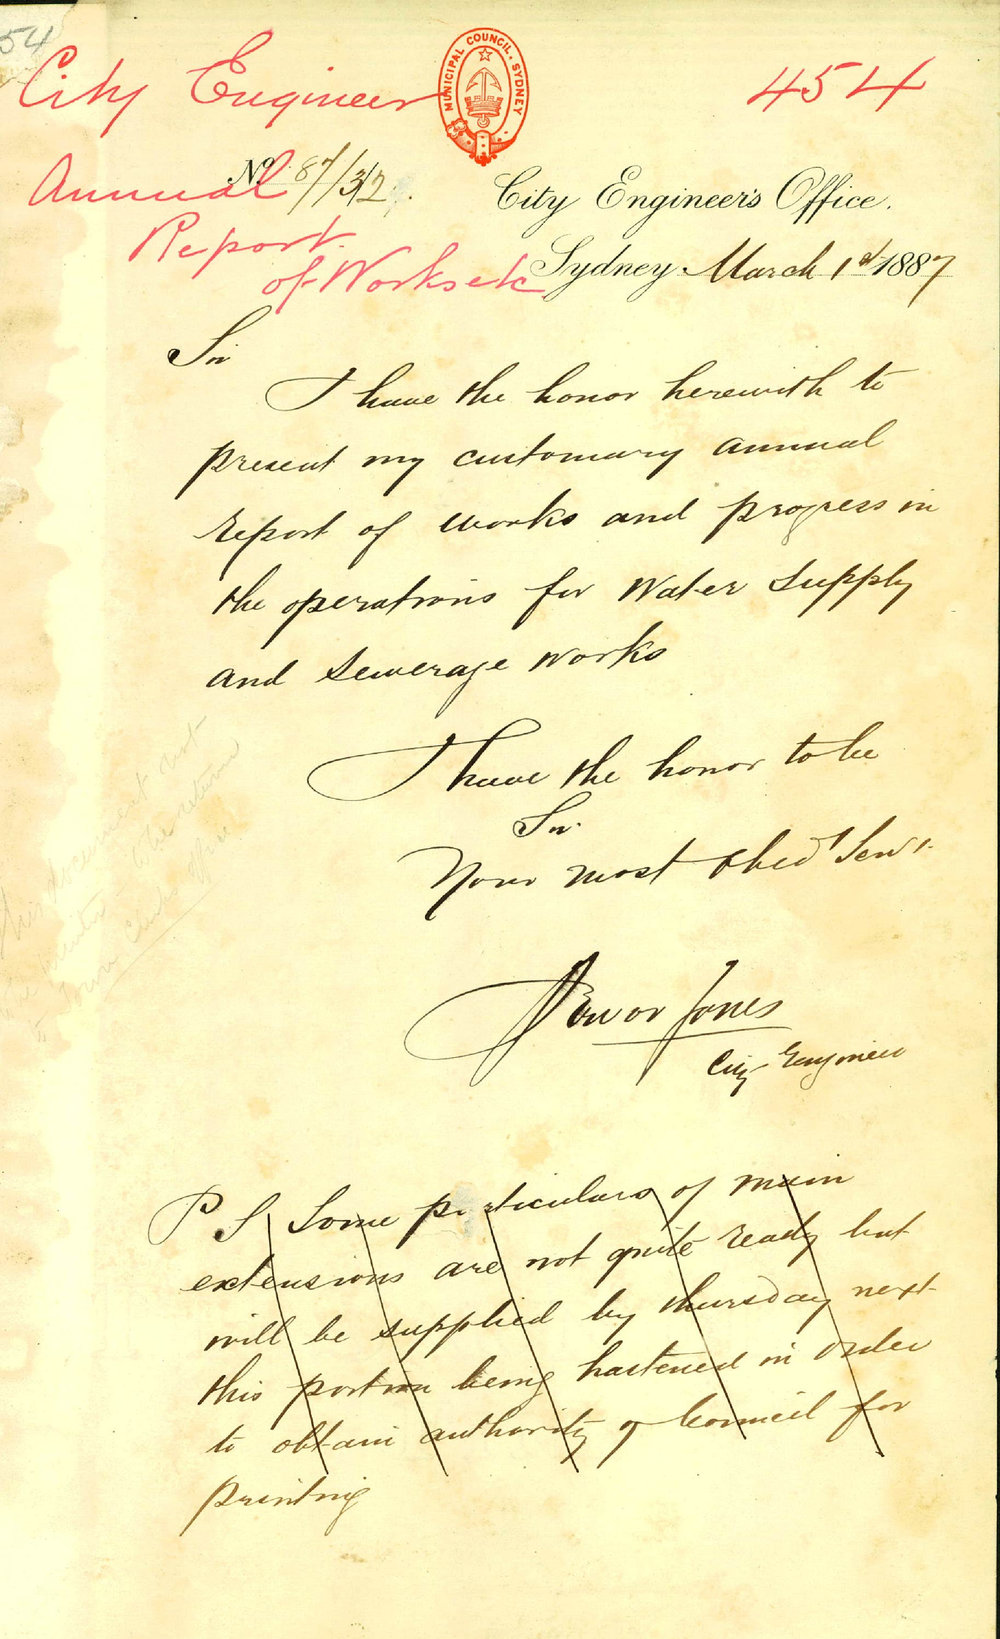 54
City Engineer
454
MUNICIPAL COUNCIL, SYDNEY
Annual
Report
of Works etc
No. 87/312.
City Engineer's Office.
Sydney March 1st 1887
Sir
I have the honor herewith to
present my customary annual
report of works and progress in
the operations for Water Supply
and Sewerage Works
I have the honor to be
Sir
Your most obedt Servt
Trevor Jones
City Engineer
P S Some particulars of main
extensions are not quite ready but
will be supplied by thursday next
this portion being hastened in order
to obtain authority of Council for
printing
This document
the printer
Town Clerk's office